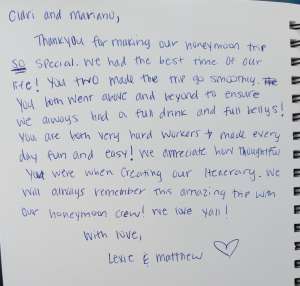 Clari and Mariano,
Thankyou for making our honeymoon trip
so special. We had the best time of our
life! You two made the trip go smoothly.
You both went above and beyond to ensure
we always had a full drink and full bellys!
You are both very hard workers + made every
day fun and easy! We appreciate how thoughtful
you were when creating our itenerary. We
will always remember this amazing trip with
our honeymoon crew! We love yall!
With love,
Lexie & Matthew